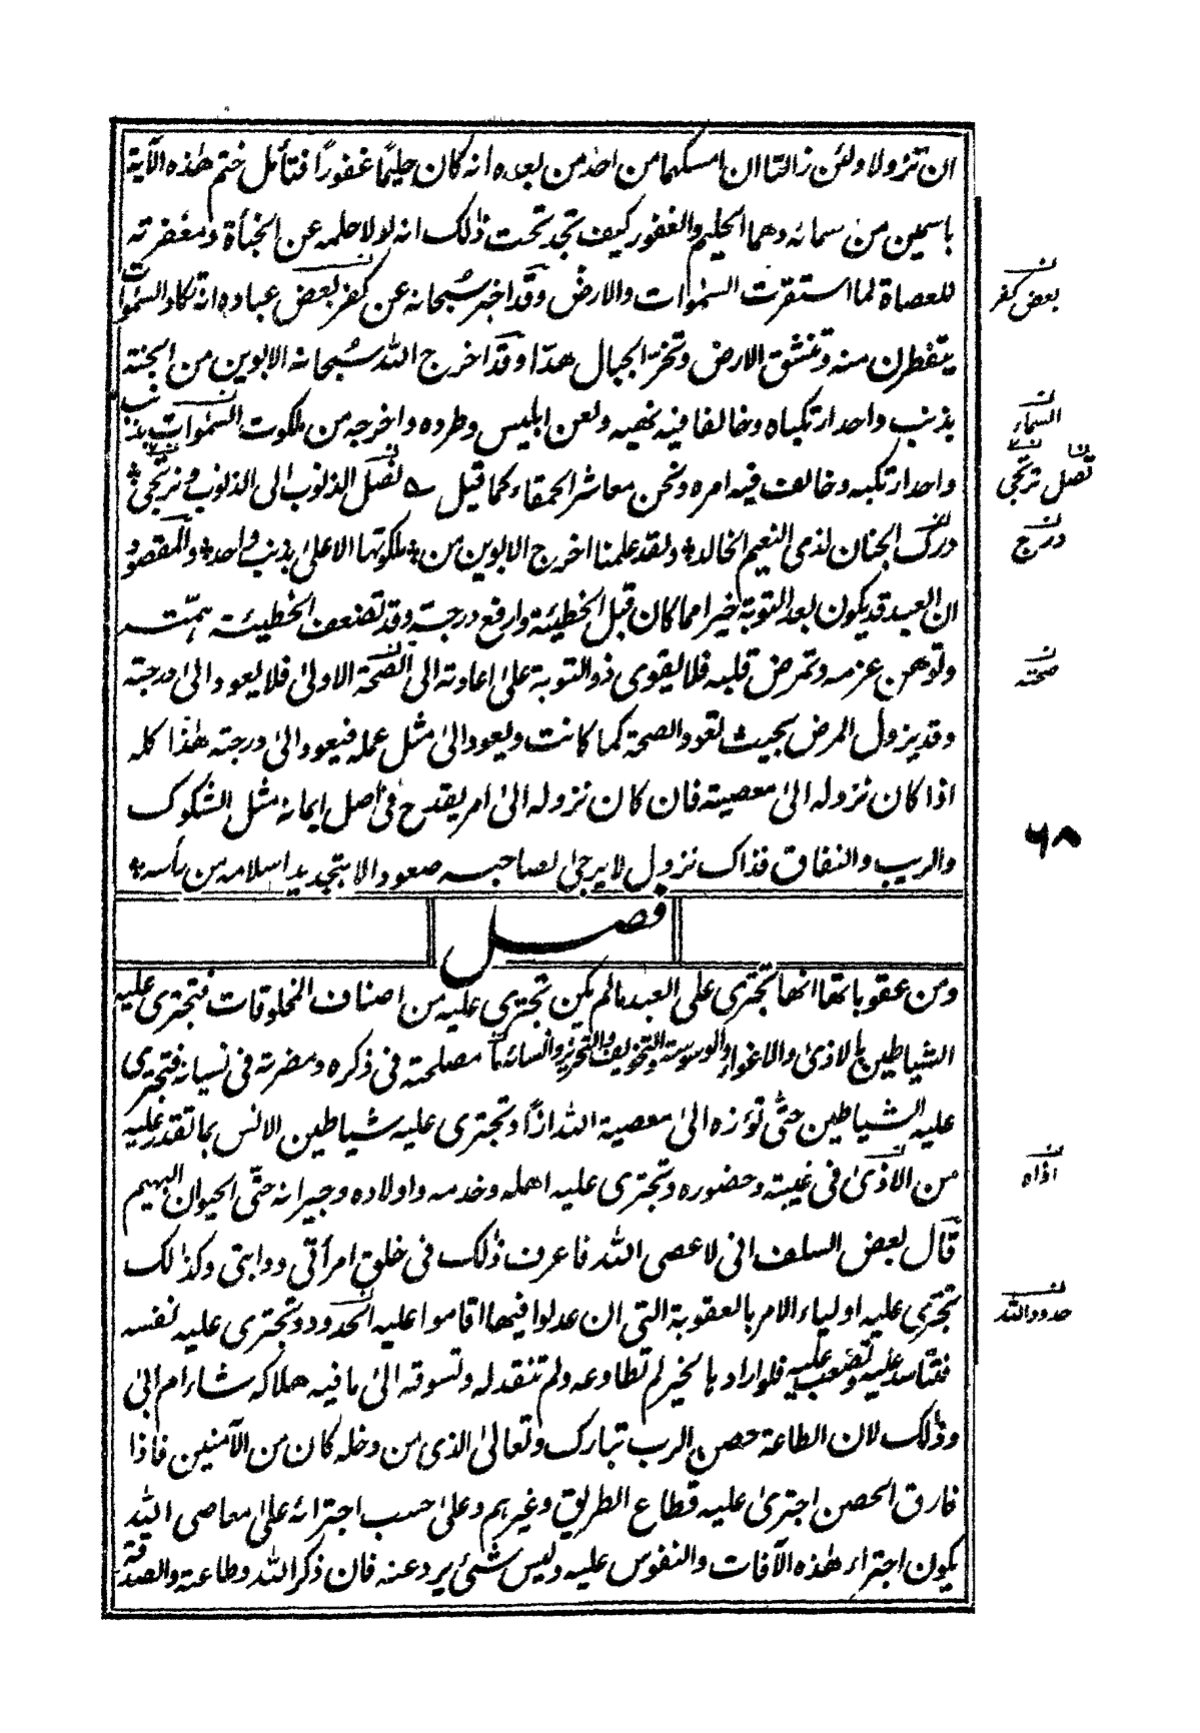 ان تزولا ولئن زالتا ان امسكهما من احد من بعده انه كان حليمًا غفورًا فتأمل ختم هٰذه الآية
باسمين من اسمائه وهما الحليم والغفور كيف تجد تحت ذٰلك انه لولا حلمه عن الجناة ومغفرته
للعصاة لما استقرت السمٰوات والارض وقد اخبر سُبحانه عن كفر بعض عباده انه تكاد السمٰوات
بعض كفر
يتفطرن منه وتنشق الارض وتخر الجبال هدّا وقد اخرج الله سُبحانه الابوين من الجنة
بذنب واحد ارتكباه وخالفا فيه نهيه ولعن ابليس وطرده واخرجه من ملكوت السمٰوات بذنب
السماء
واحد ارتكبه وخالف فيه امره ونحن معاشر الحمقاء كما قيل ؎ نصل الذنوب الى الذنوب ونرتجى *
تصل ترتجى
درك الجنان لذى النعيم الخالد * ولقد علمنا اخرج الابوين من * ملكوتها الاعلىٰ بذنب واحد * والمقصود
درج
ان العبد قد يكون بعد التوبة خيرا مما كان قبل الخطيئة وارفع درجة وقد تضعف الخطيئة همّته
وتوهن عزمه وتمرض قلبه فلا يقوى ذو التوبة علىٰ اعادته الى الصحة الاولىٰ فلا يعود الىٰ درجته
صحته
وقد يزول المرض بحيث تعود الصحة كما كانت ويعود الىٰ مثل عمله فيعود الىٰ درجته هٰذا كله
اذا كان نزوله الىٰ معصية فان كان نزوله الىٰ امر يقدح فى اصل ايمانه مثل الشكوك
والريب والنفاق فذاك نزول لا يرجىٰ لصاحبه صعود الا بتجديد اسلامه من رأسه *
٦٨
فصل
ومن عقوباتها انها تجترى على العبد ما لم يكن تجترى عليه من اصناف المخلوقات فتجترى عليه
الشياطين بالاذىٰ والاغواء والوسوسة والتخويف والتحزين وانسائه ما مصلحته فى ذكره ومضرته فى نسيانه فتجترى
عليه الشياطين حتّٰى تؤزه الىٰ معصية الله ازًّا وتجترى عليه شياطين الانس بما تقدر عليه
من الاذىٰ فى غيبته وحضوره وتجترى عليه اهله وخدمه واولاده وجيرانه حتّى الحيوان البهيم
اذاه
قال بعض السلف انى لاعصى الله فاعرف ذٰلك فى خلق امرأتى ودابتى وكذٰلك
تجترى عليه اولياء الامر بالعقوبة التى ان عدلوا فيها اقاموا عليه الحدود وتجترى عليه نفسه
حدود الله
فتتأسد عليه وتصعب عليه فلو اراد بالخير لم تطاوعه ولم تنقد له وتسوقه الىٰ ما فيه هلاكه شاء ام ابىٰ
وذٰلك لان الطاعة حصن الرب تبارك وتعالىٰ الذى من دخله كان من الآمنين فاذا
فارق الحصن اجترىٰ عليه قطاع الطريق وغيرهم وعلىٰ حسب اجترائه علىٰ معاصى الله
يكون اجتراء هٰذه الآفات والنفوس عليه وليس شىٔ يرد عنه فان ذكر الله وطاعته والصدقة